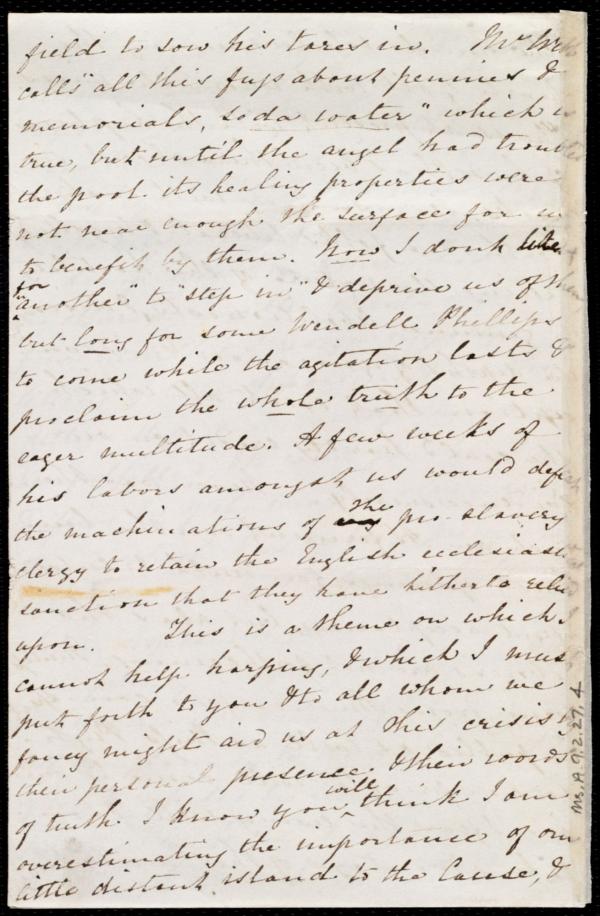 field to sow his tares in. Mr
calls "all this fuss about pennies &
memorials, soda water" which
true, but until the angel had
the pool its healing properties were
not near enough the surface for us
to benefit by them. Now I don't like
for "another" to "step in" & deprive us of them
but long for some Wendell Phillips
to come while the agitation lasts &
proclaim the whole truth to the
eager multitude. A few weeks of
his labors amongst us would
the machinations of the pro-slavery
clergy to retain the English
sanction that they have hitherto
upon. This is a theme on which I
cannot help harping, & which I must
put forth to you & to all whom we
fancy might aid us at this crisis by
their personal presence & their words
of truth. I know you will think I am
overestimating the importance of our
little distant island to the Cause, &
Ms.A.9.2.27,4